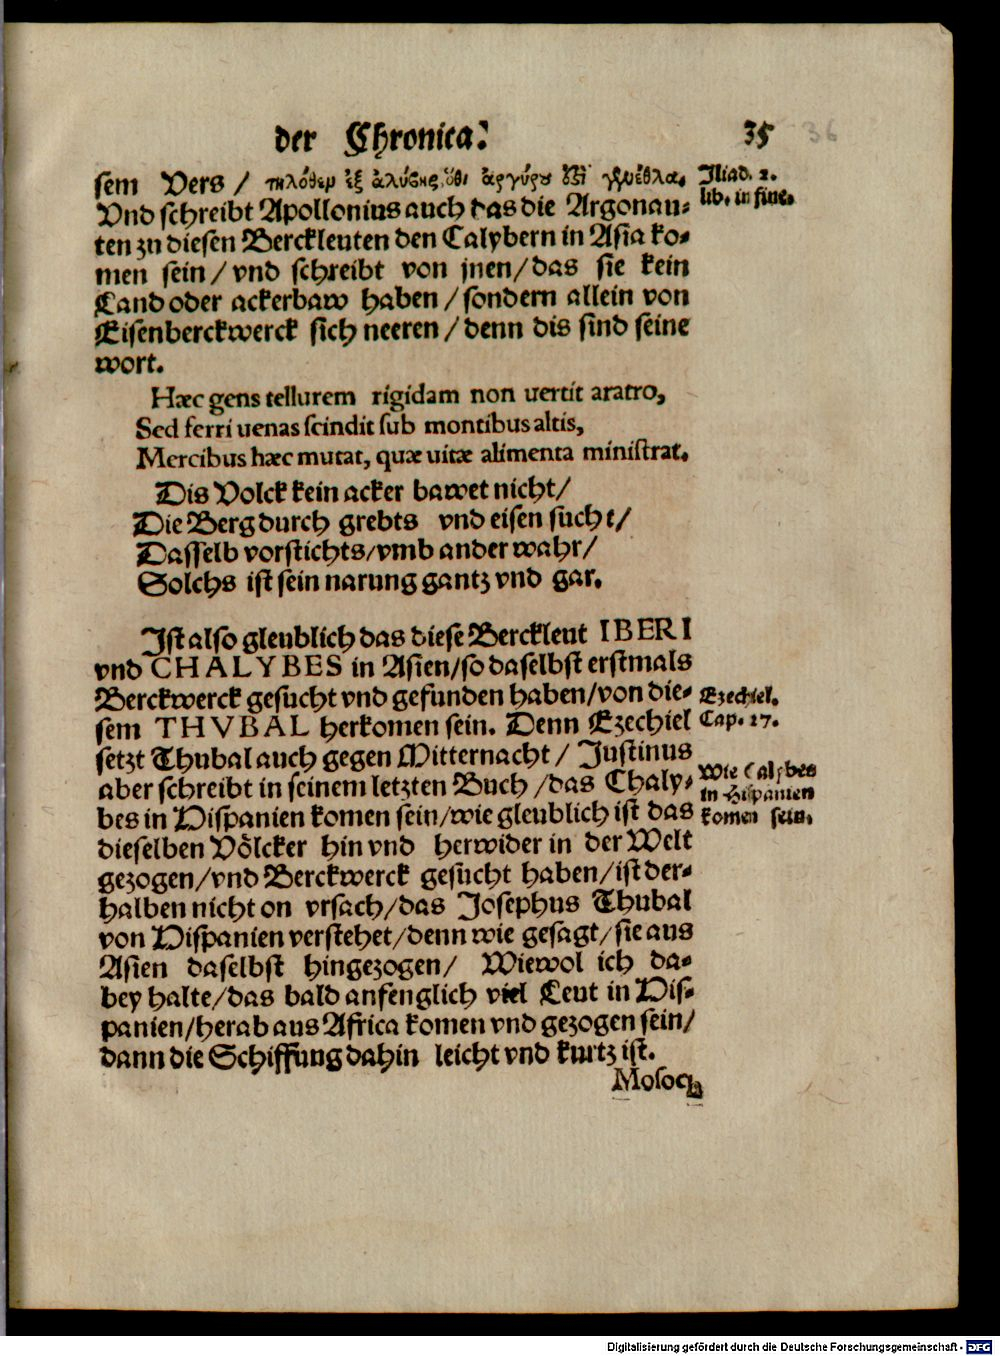 der Chronica.
35
36
sem Vers / τηλόθεν ἐξ ἀλύβης, ὅθι ἀργύρου ἐστὶ γενέθλα.
Iliad. 2.
lib. in fine.
Vnd schreibt Apollonius auch das die Argonau-
ten zu diesen Berckleuten den Calybern in Asia ko-
men sein / vnd schreibt von jnen / das sie kein
Land oder ackerbaw haben / sondern allein von
Eisenberckwerck sich neeren / denn dis sind seine
wort.
Hæc gens tellurem rigidam non uertit aratro,
Sed ferri uenas scindit sub montibus altis,
Mercibus hæc mutat, quæ uitæ alimenta ministrat.
Dis Volck kein acker bawet nicht /
Die Berg durch grebts vnd eisen sucht /
Dasselb vorstichts / vmb ander wahr /
Solchs ist sein narung gantz vnd gar.
Ist also gleublich das diese Berckleut IBERI
vnd CHALYBES in Asien / so daselbst erstmals
Berckwerck gesucht vnd gefunden haben / von die-
sem THVBAL herkomen sein. Denn Ezechiel
Ezechiel.
Cap. 27.
setzt Thubal auch gegen Mitternacht / Justinus
aber schreibt in seinem letzten Buch / das Chaly-
bes in Hispanien komen sein / wie gleublich ist das
Wie Calybes
in Hispanien
komen sein.
dieselben Völcker hin vnd herwider in der Welt
gezogen / vnd Berckwerck gesucht haben / ist der-
halben nicht on vrsach / das Josephus Thubal
von Hispanien verstehet / denn wie gesagt / sie aus
Asien daselbst hingezogen / Wiewol ich da-
bey halte / das bald anfenglich viel Leut in His-
panien / herab aus Africa komen vnd gezogen sein /
dann die Schiffung dahin leicht vnd kurtz ist.
Mosoch
Digitalisierung gefördert durch die Deutsche Forschungsgemeinschaft - DFG